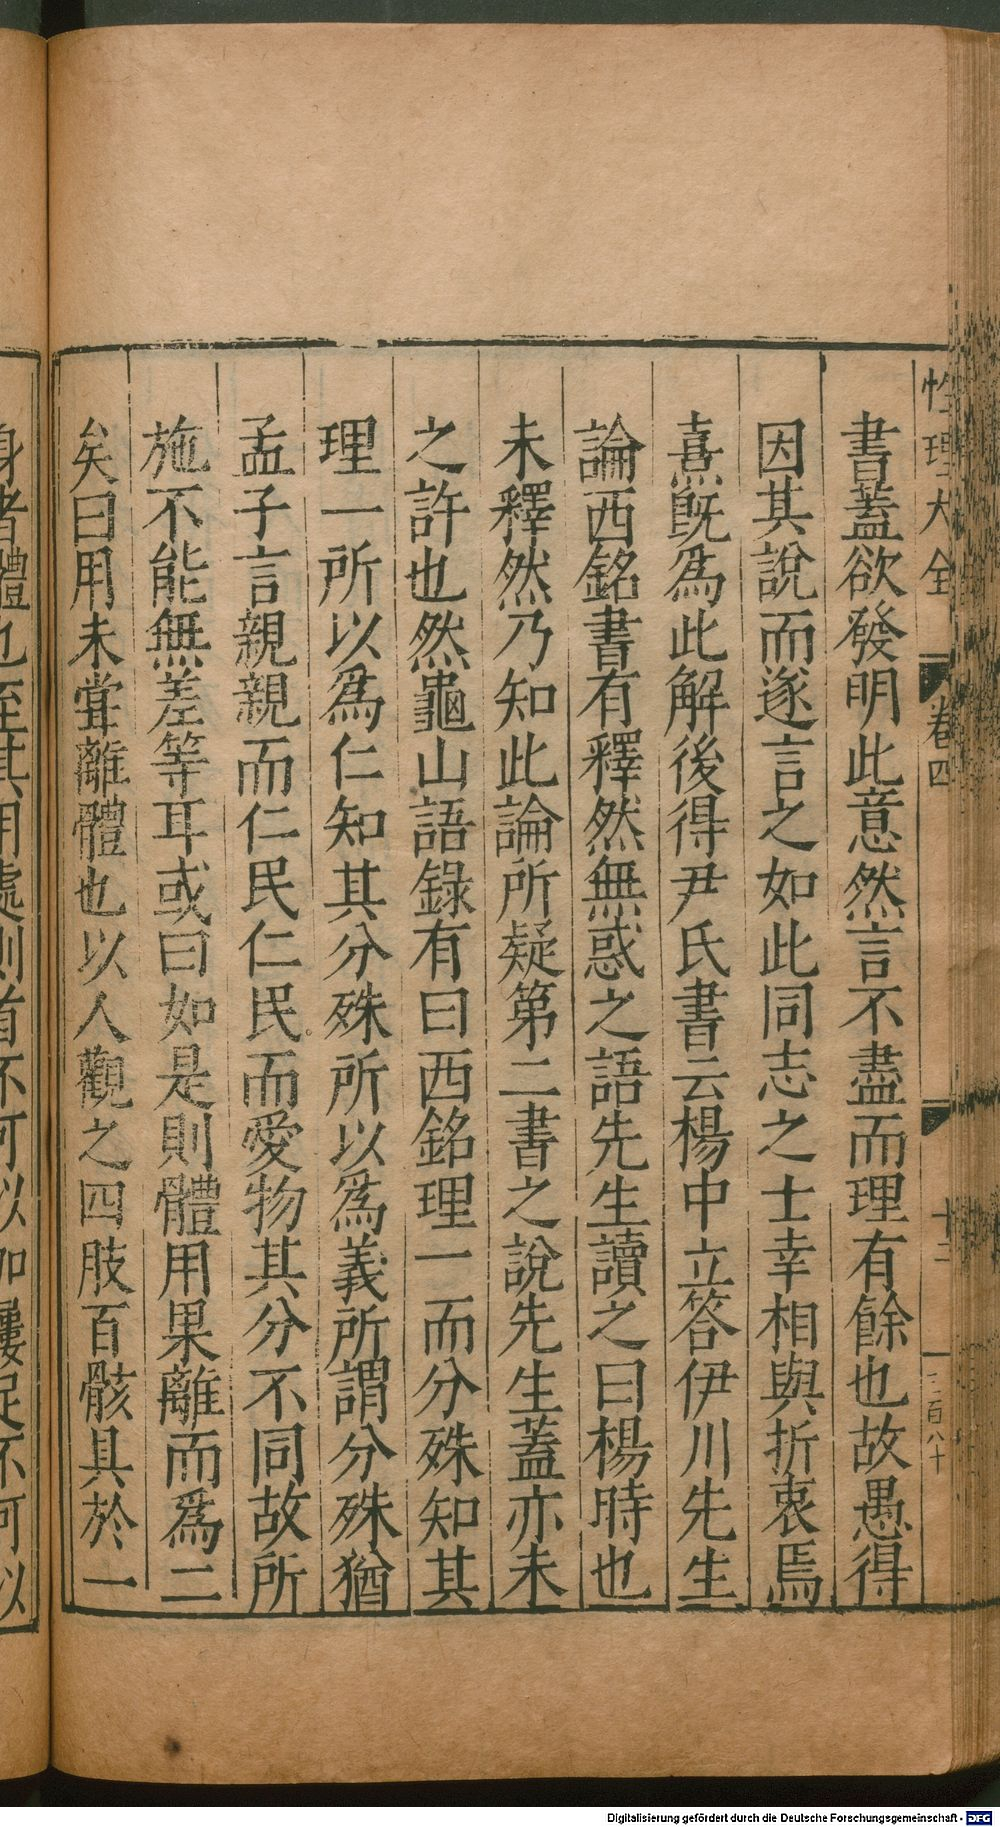 性理大全 卷四 十二 百八十
書蓋欲發明此意然言不盡而理有餘也故愚得
因其說而遂言之如此同志之士幸相與折衷焉
熹既爲此解後得尹氏書云楊中立答伊川先生
論西銘書有釋然無惑之語先生讀之曰楊時也
未釋然乃知此論所疑第二書之說先生蓋亦未
之許也然龜山語錄有曰西銘理一而分殊知其
理一所以爲仁知其分殊所以爲義所謂分殊猶
孟子言親親而仁民仁民而愛物其分不同故所
施不能無差等耳或曰如是則體用果離而爲二
矣曰用未甞離體也以人觀之四肢百骸具於一
身者體也至其用處則首不可以加屨足不可以
Digitalisierung gefördert durch die Deutsche Forschungsgemeinschaft - DFG